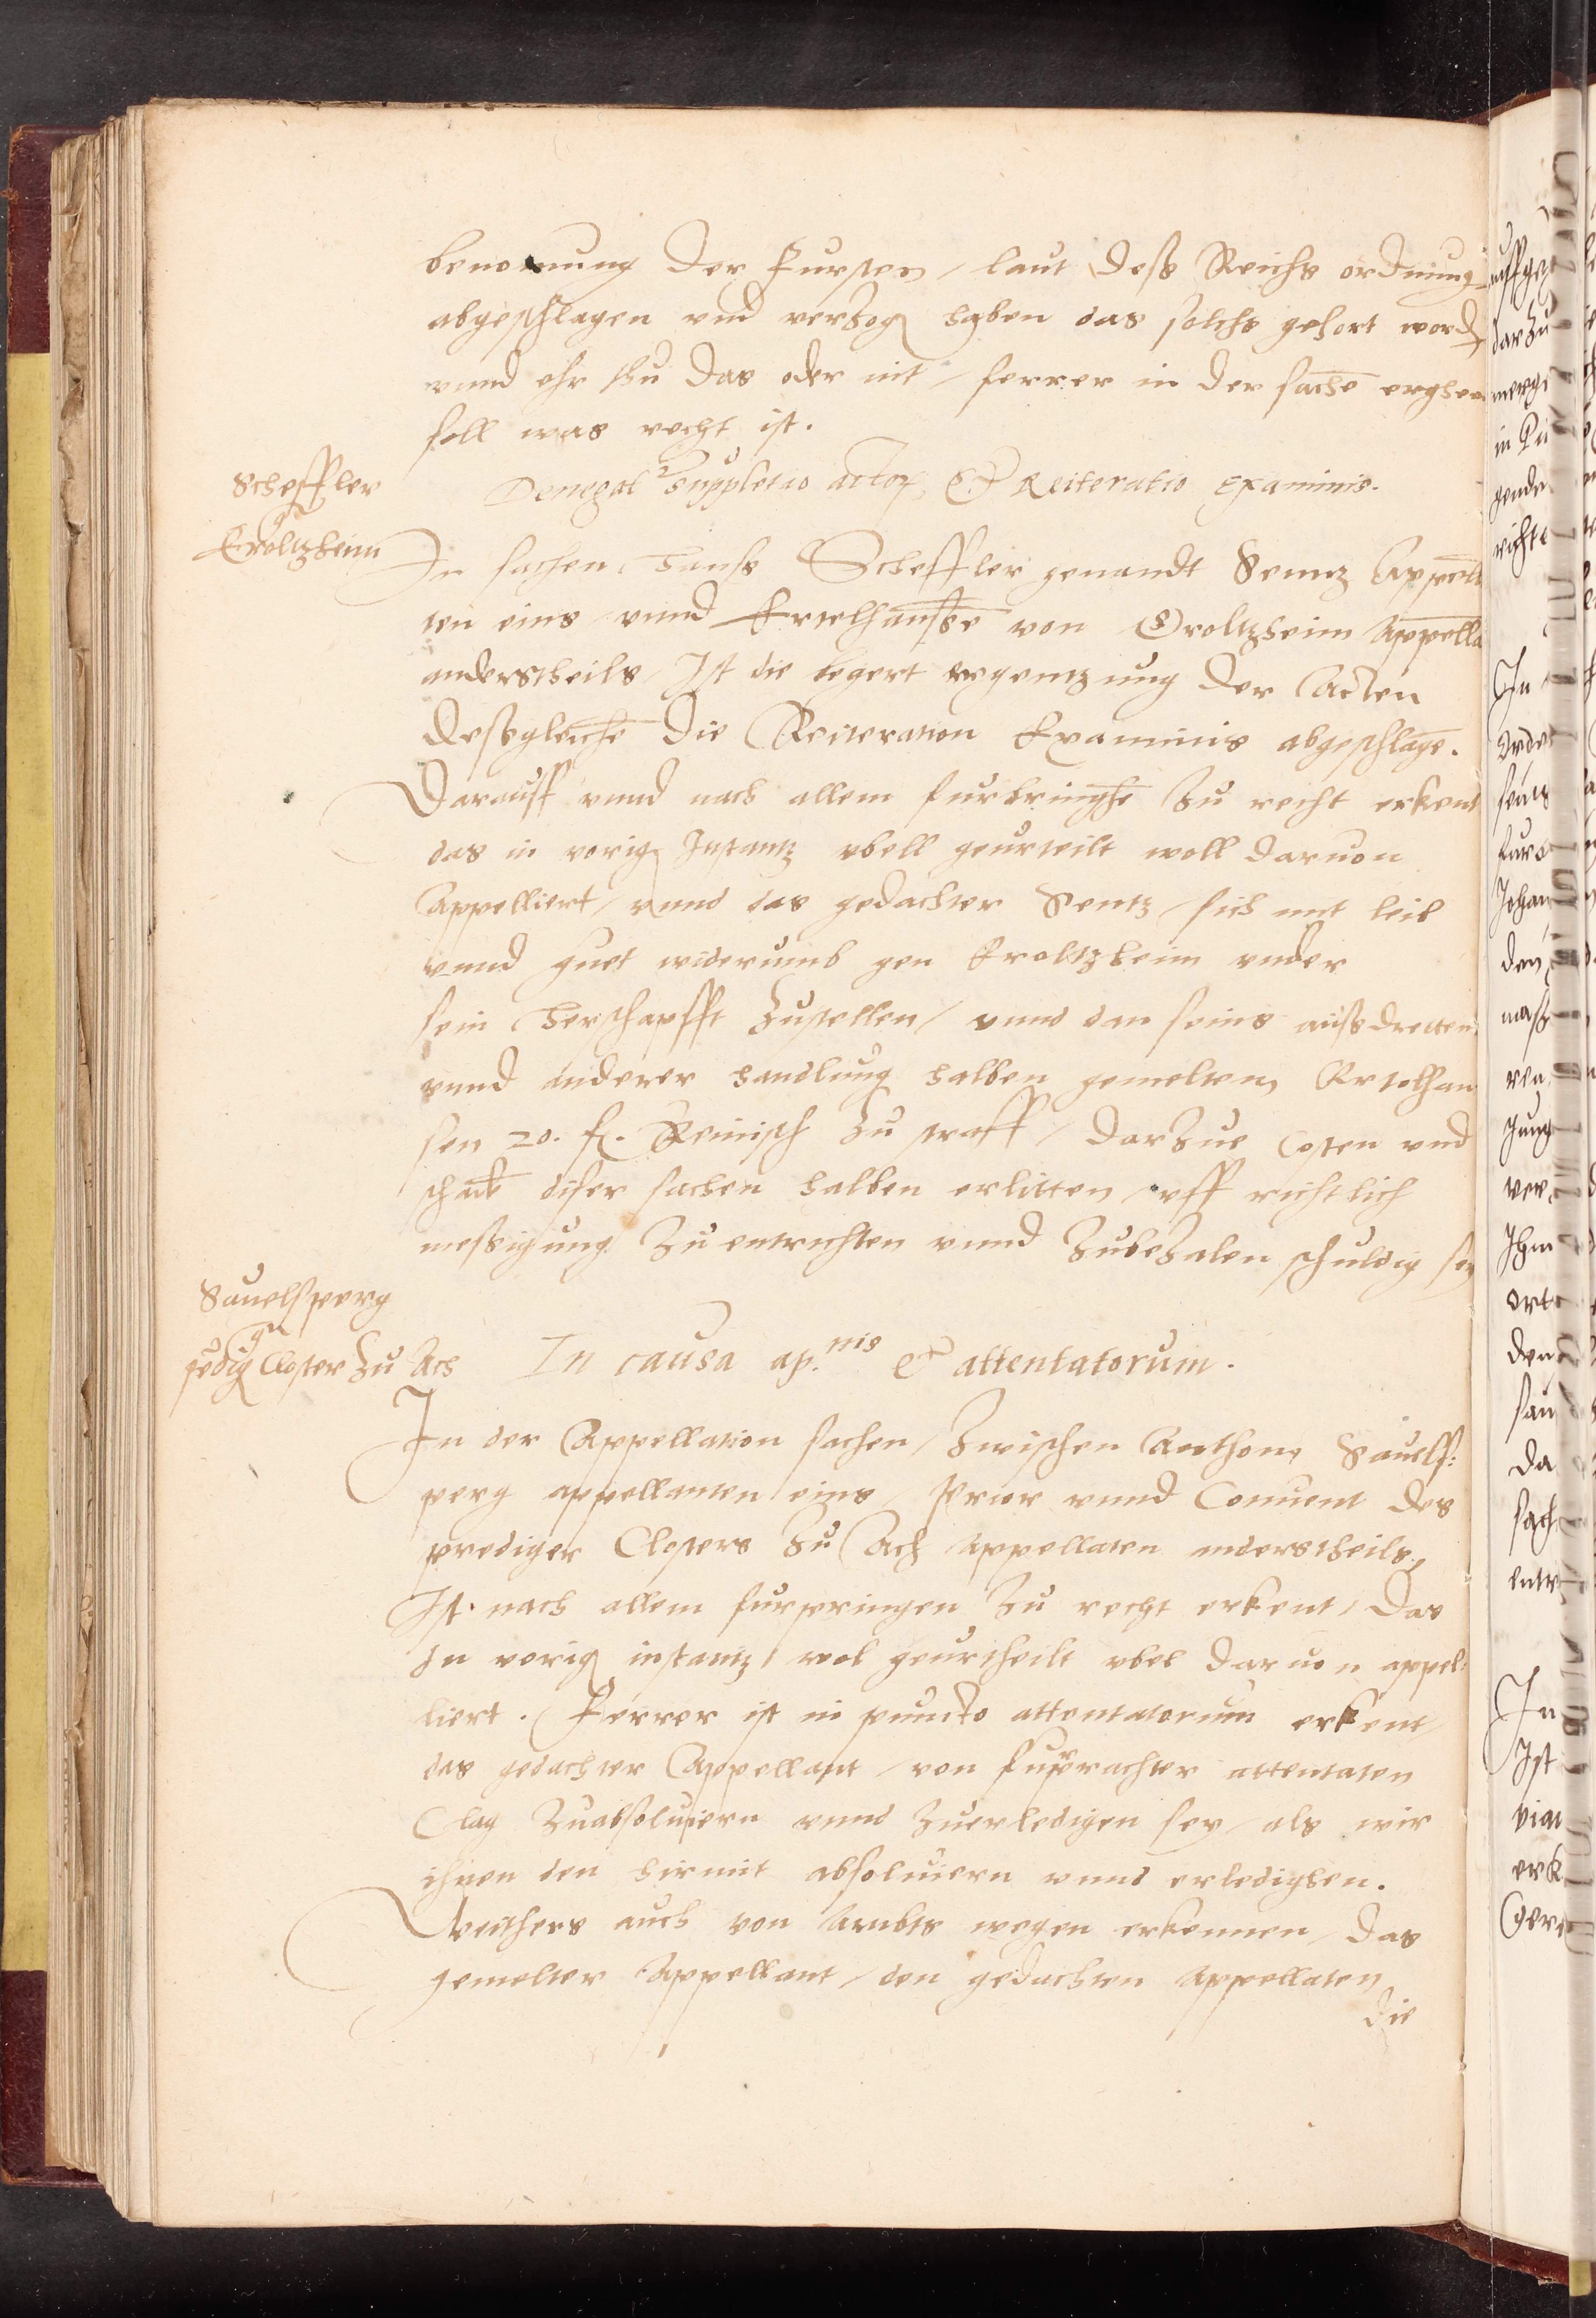 benonung der Fursten / laut deß Reichs ordnung
abgeschlagen vnd verzog haben das solchs gehort word
vnnd ehr thu das oder nit / ferrer in der sache erghen
soll was recht ist.
Scheffler
Eroltzheim
Denegat suppletio actor, Et Reiteratio Examinis.
In sachen Hanß Scheffler genandt Senntz Appella
ten eins vnnd Ertelhansse von Eroltzheim Appella
anderstheils / Ist die begert ergentzung der Acten
deßgleiche die Reiteration Examinis abgeschlage.
Darauff vnnd nach allem furbringhe zu recht erkent
das in vorig Instantz vbell geurteilt woll daruon
Appelliert / vnnd das gedachter Sentz / sich mit leib
vnnd guet widerumb gen Eroltzheim vnder
sein Herschapfft zustellen / vnnd dan seins außdretten
vnnd anderer handlung halben gemelten Ertelhan
sen 20. fl. Reinisch zu straff / darzue Costen vnd
schade diser sachen halben erlitten vff richtlich
messigung zu entrichten vnnd zubezalen schuldig sey
Sauelsperg
predig Closter zu Ach
In causa ap.nis et attentatorum.
In der Appellation sachen / zwischen Anthonj Sauelß:
perg appellanten eins / Prior vnnd Conuent des
prediger Closters zu Ach Appellaten anderstheils,
Ist nach allem furpringen zu recht erkent / das
In vorig instantz / wol geurtheilt vbel daruon appel:
liert. Ferrer ist in puncto attentatorum erkent
das gedachter Appellant / von furprachter attentaten
Clag zuabsoluiern vnnd zuerledigen sey / als wir
ihnen den hirmit absoluiern vnnd erledighen.
Weithers auch von Ambts wegen erkennen / das
gemelter Appellant / den gedachten Appellaten
die